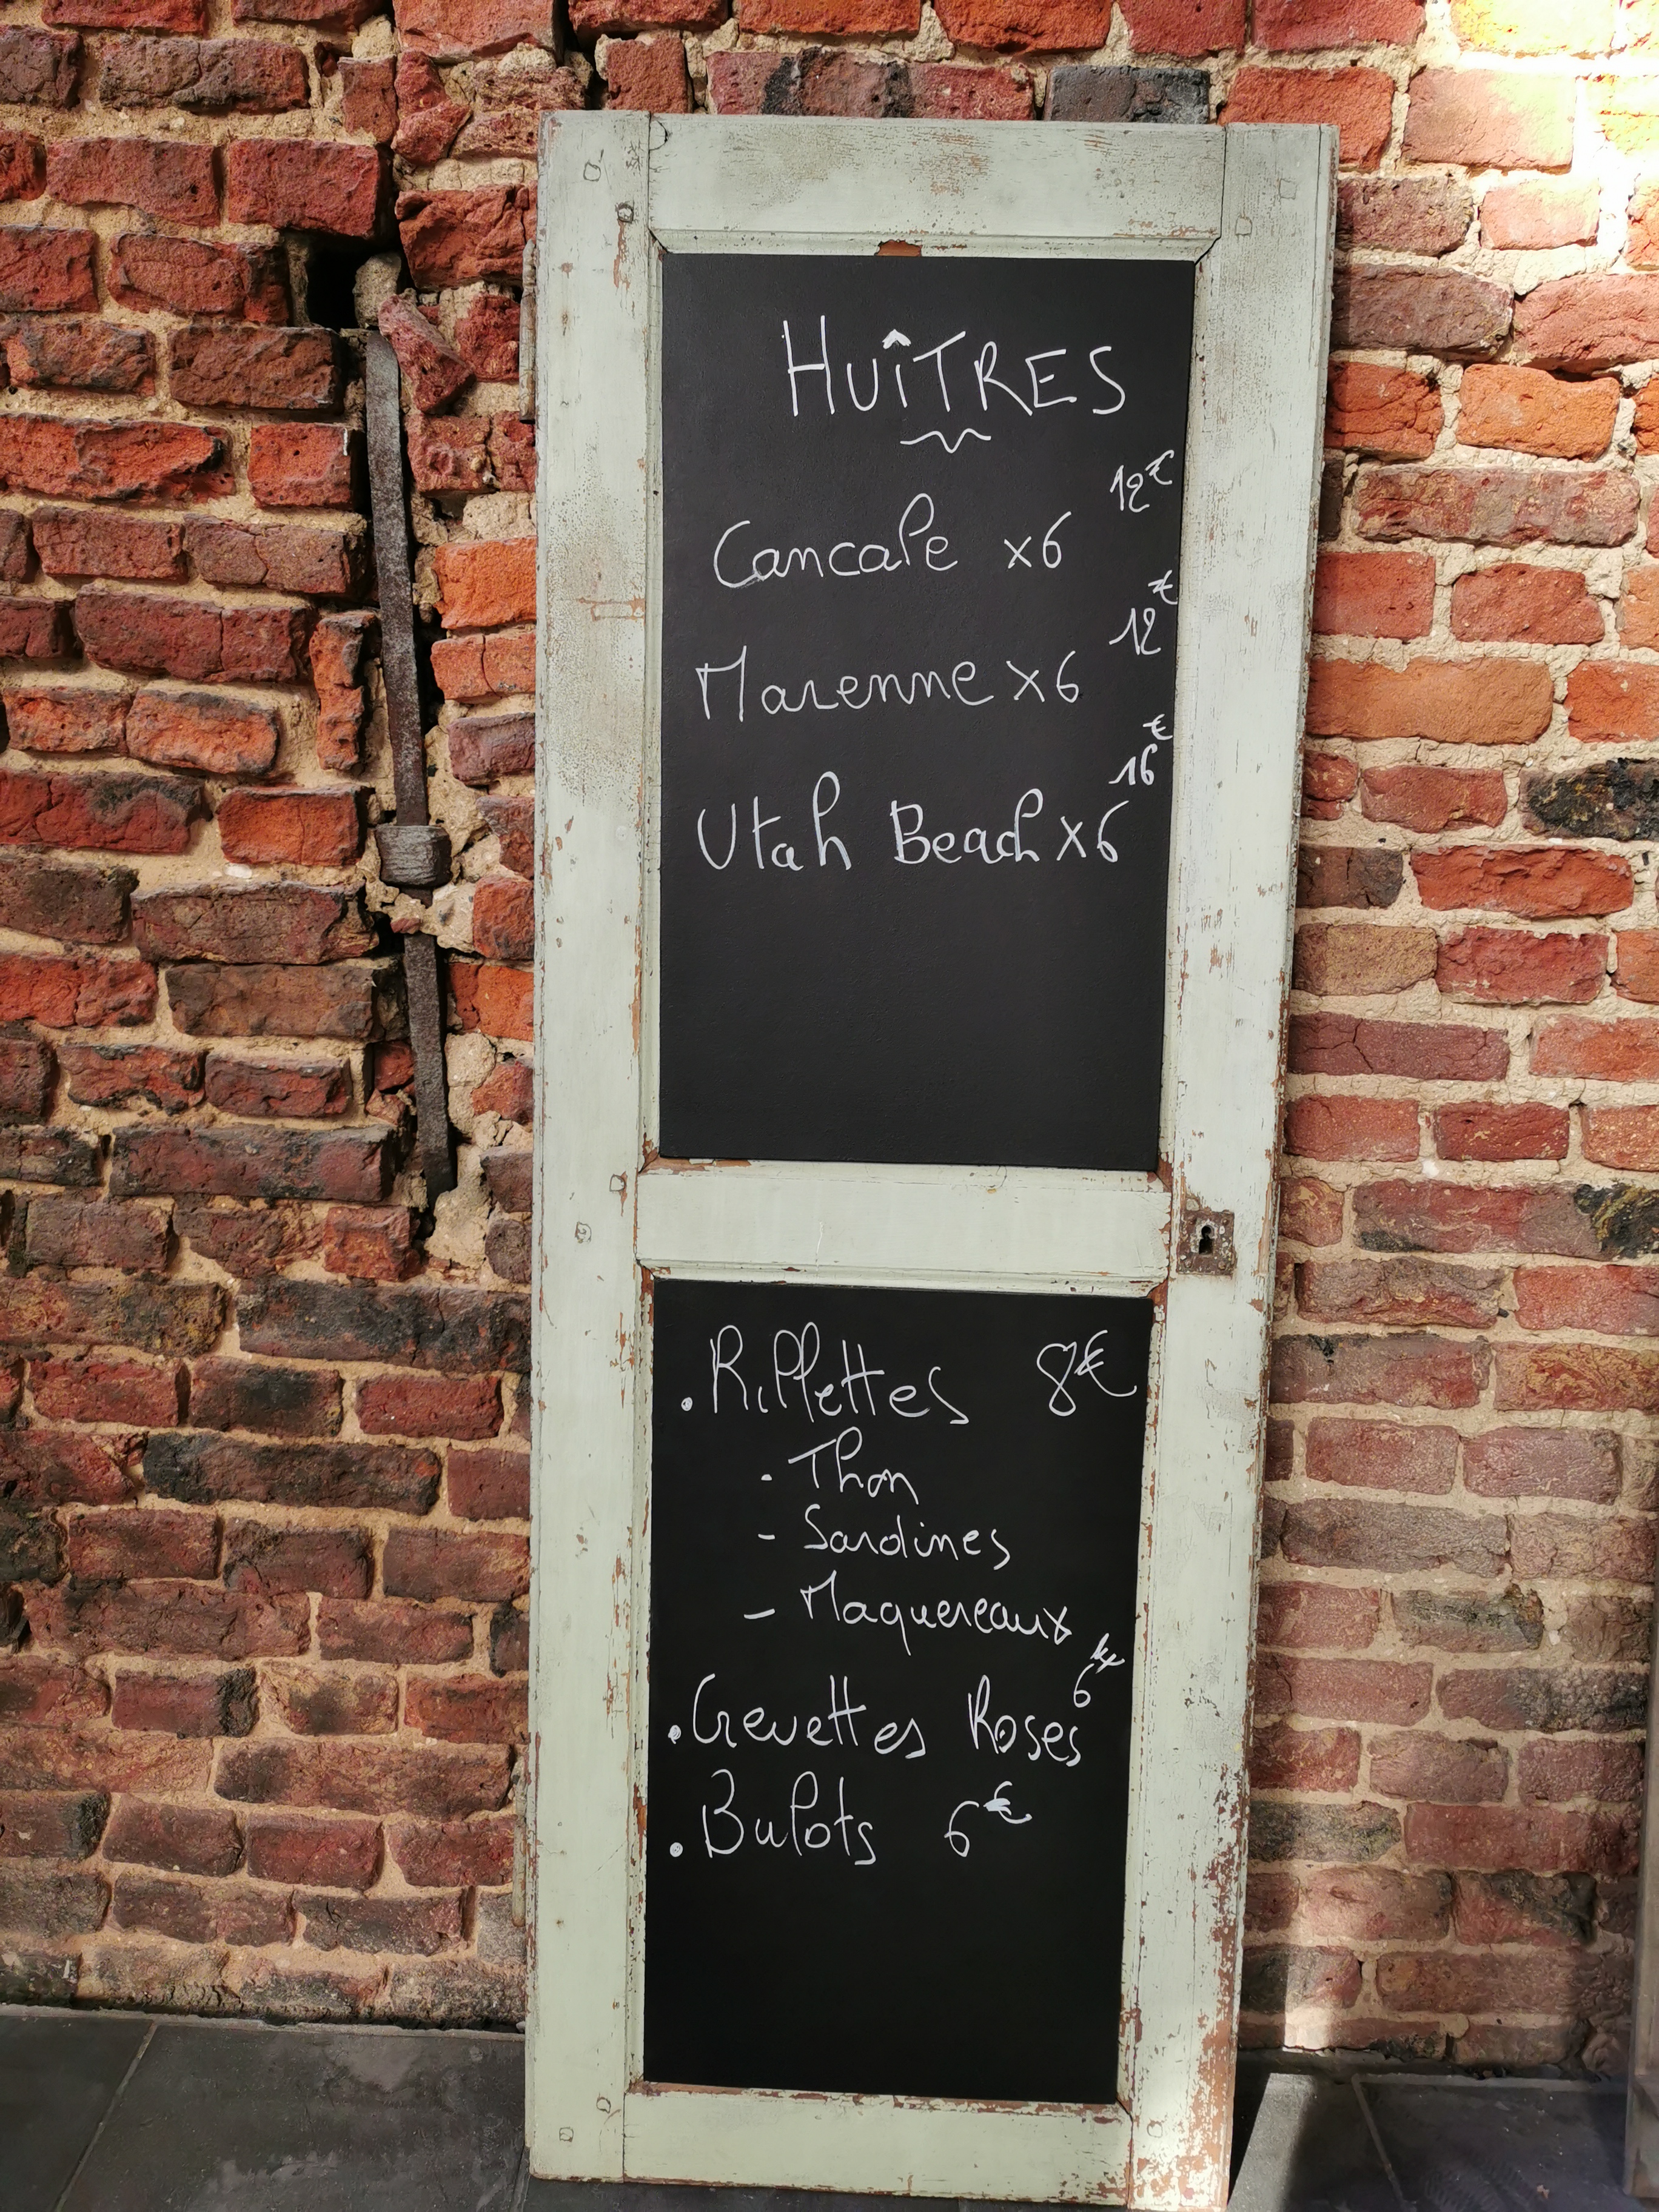 HUÎTRES
Cancale x6 12€
Marenne x6 12€
Utah Beach x6 16€
. Rillettes 8€
- Thon
- Sardines
- Maquereaux
. Crevettes Roses 6€
. Bulots 6€